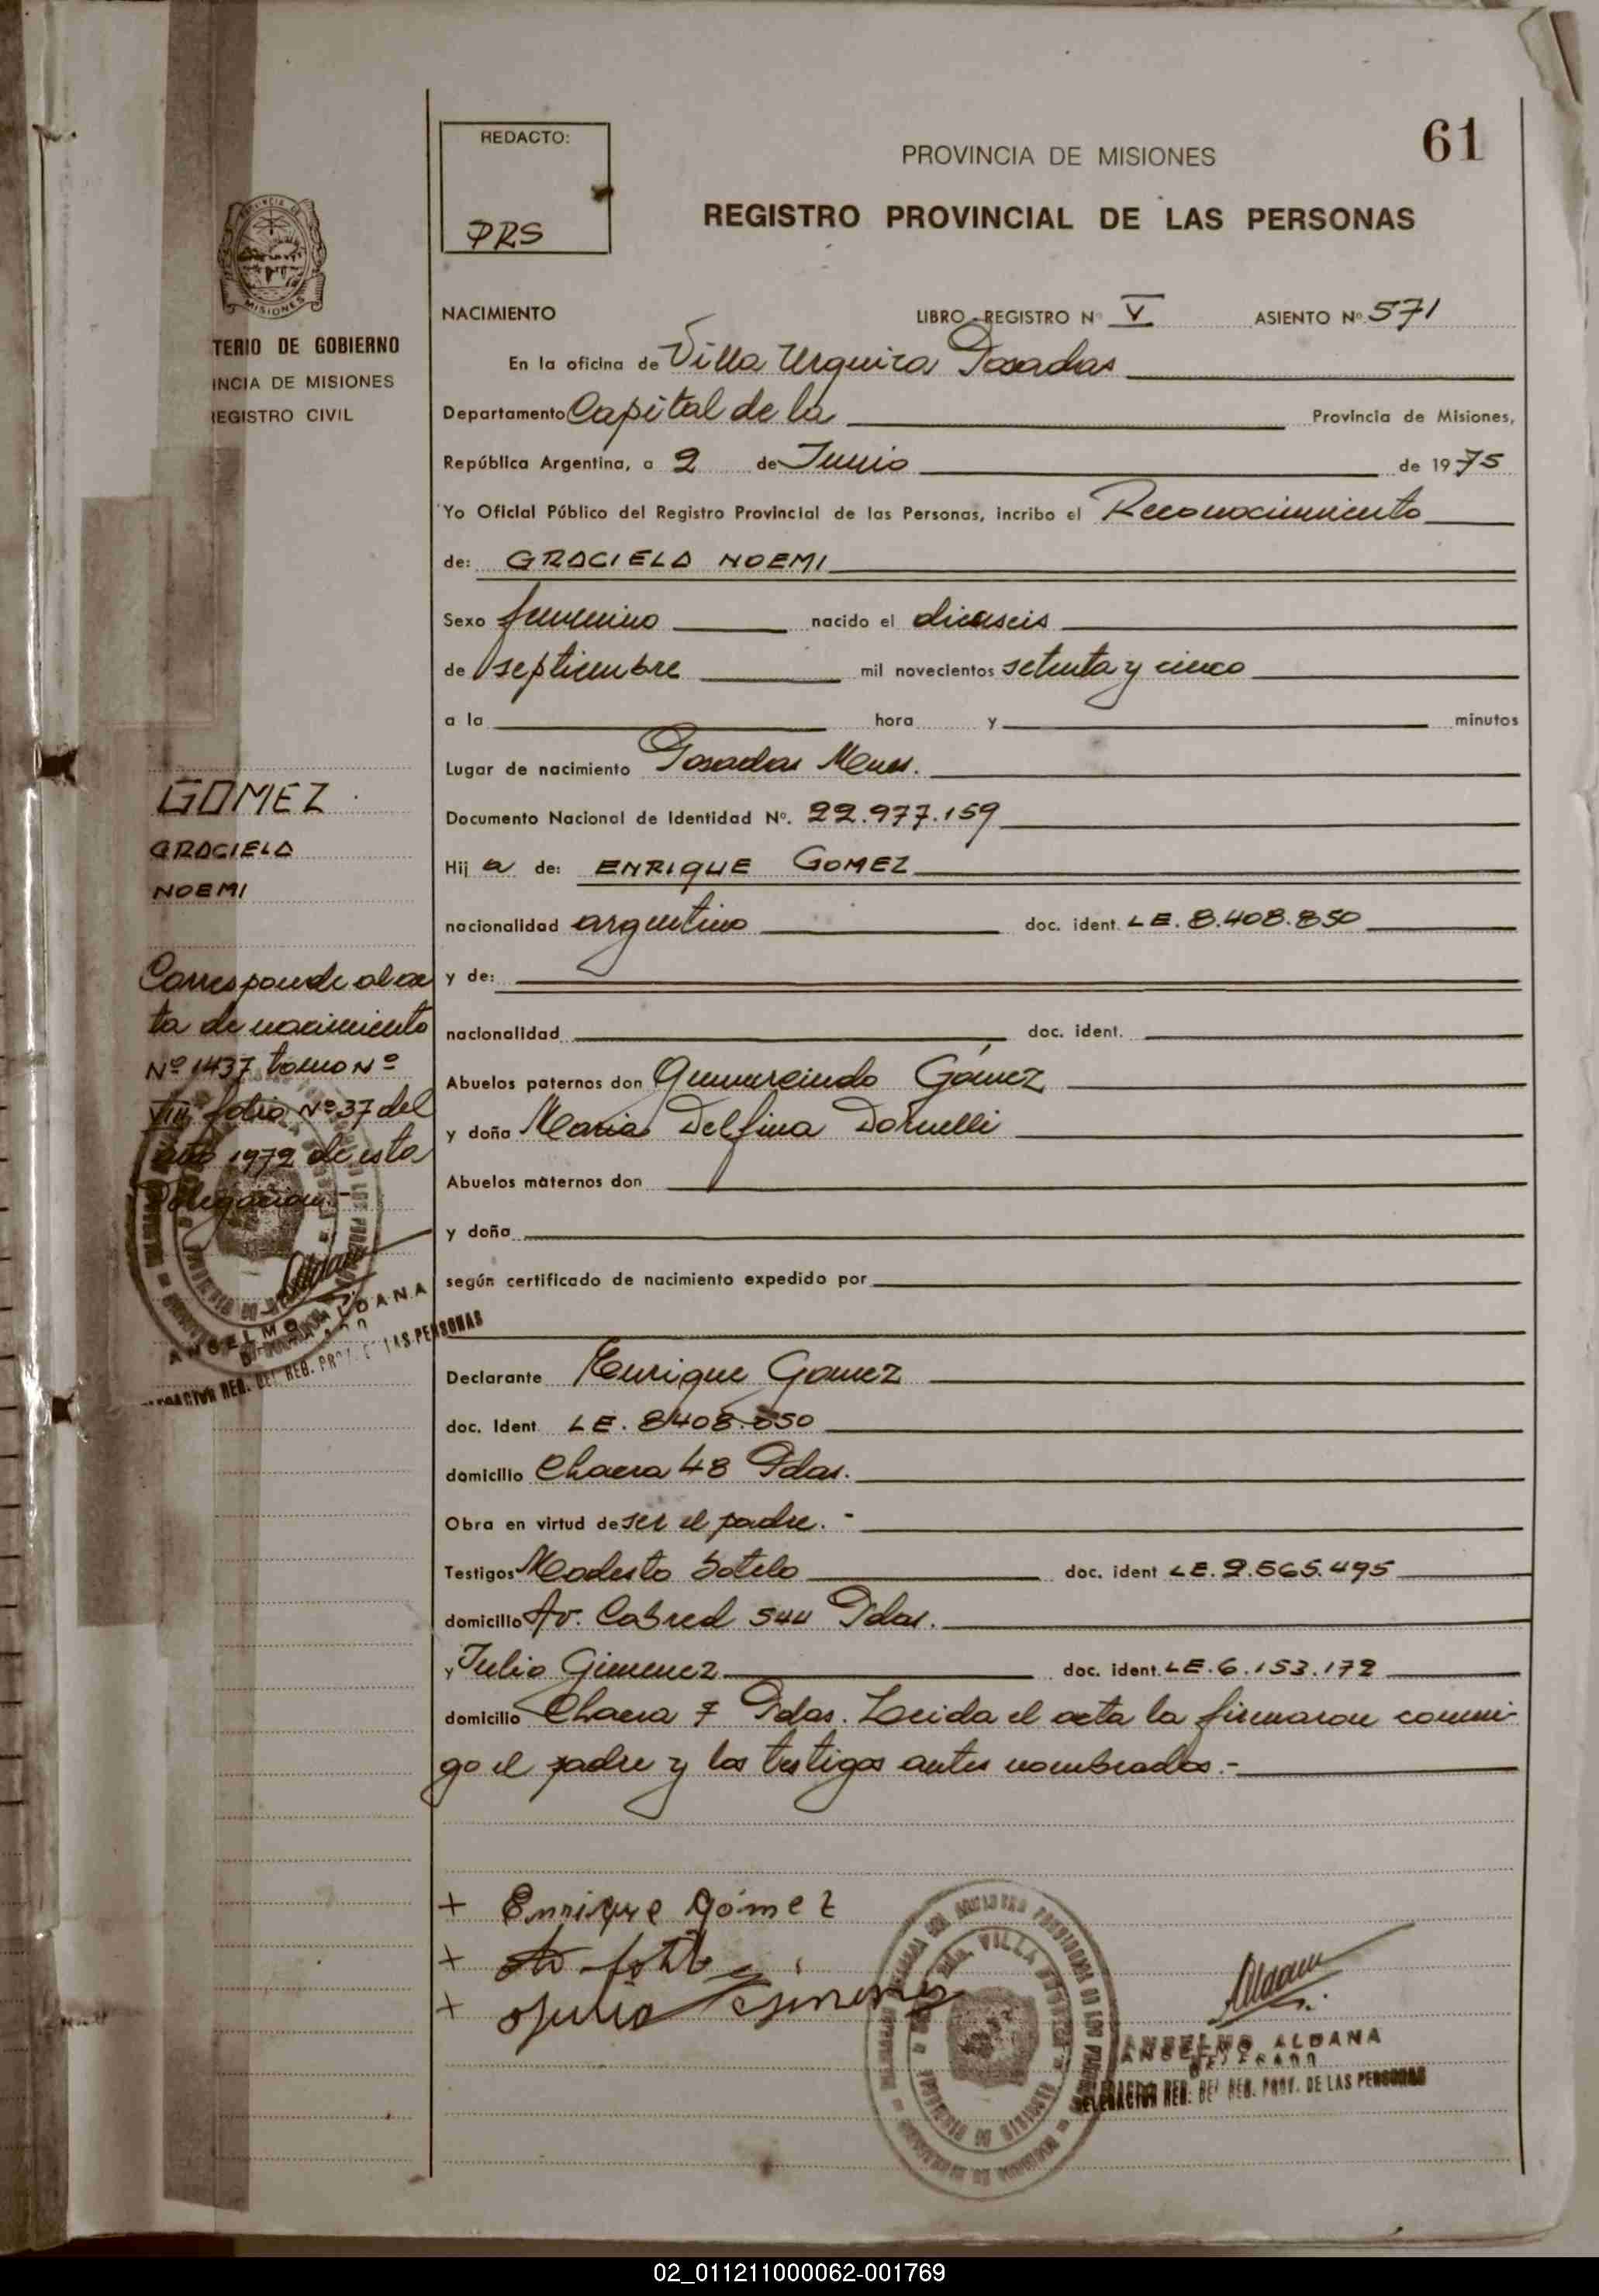 61
REDACTO:
PRS
PROVINCIA DE MISIONES
REGISTRO PROVINCIAL DE LAS PERSONAS
PROVINCIA DE
MISIONES
TERIO DE GOBIERNO
INCIA DE MISIONES
REGISTRO CIVIL
NACIMIENTO LIBRO - REGISTRO Nº V ASIENTO Nº 571
En la oficina de Villa Urquiza Posadas
Departamento Capital de la Provincia de Misiones,
República Argentina, a 2 de Junio de 1975
Yo Oficial Público del Registro Provincial de las Personas, incribo el Reconocimiento
de: GRACIELA NOEMI
Sexo femenino nacido el dieciseis
de septiembre mil novecientos setenta y cinco
a la hora y minutos
Lugar de nacimiento Posadas Mnes.
Documento Nacional de Identidad Nº. 22.977.159
Hij a de: ENRIQUE GOMEZ
nacionalidad argentino doc. ident. LE. 8.408.850
y de:
nacionalidad doc. ident.
Abuelos paternos don Gumercindo Gómez
y doña Maria Delfina Dornelli
Abuelos maternos don
y doña
según certificado de nacimiento expedido por
Declarante Enrique Gomez
doc. Ident. LE. 8408.850
domicilio Chacra 48 Pdas.
Obra en virtud de ser el padre. -
Testigos Modesto Sotelo doc. ident LE. 2.565.495
domicilio Av. Cabred 544 Pdas.
y Julio Gimenez doc. ident. LE. 6.153.172
domicilio Chacra 7 Pdas. Leida el acta la firmaron conmi-
go el padre y los testigos antes nombrados.-
GOMEZ
GRACIELA
NOEMI
Corresponde al ac
ta de nacimiento
Nº 1437 tomo Nº
VIII folio Nº 37 del
año 1972 de esta
Delegacion.-
ANSELMO ALDANA
DELEGADO
DELEGACION REG. DEL REG. PROV. DE LAS PERSONAS
+ Enrique Gómez
+ Sotelo
+ Julio Gimenez
VILLA URQUIZA
Aldana
ANSELMO ALDANA
DELEGADO
DELEGACION REG. DEL REG. PROV. DE LAS PERSONAS
02_011211000062-001769